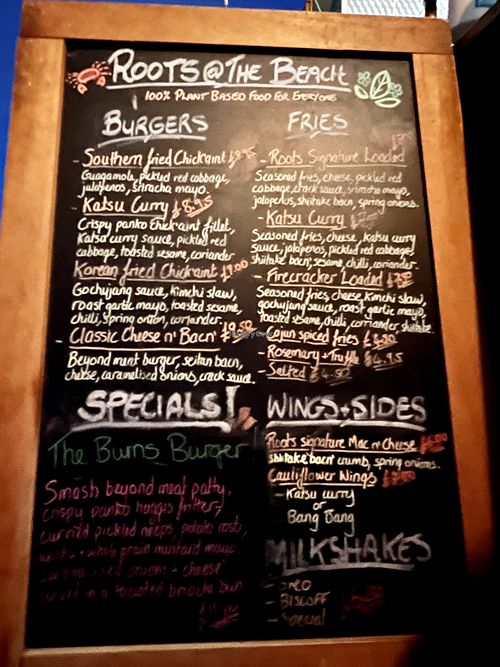 ROOTS@THE BEACH
100% PLANT BASED FOOD FOR EVERYONE
BURGERS
- Southern fried Chick'aint £8.95
Guagamole, pickled red cabbage,
jalapenos, sriracha mayo.
- Katsu Curry £8.95
Crispy panko Chick'aint fillet,
Katsu curry sauce, pickled red
cabbage, toasted sesame, coriander
Korean fried Chick'aint £9.00
Gochujang sauce, Kimchi slaw,
roast garlic mayo, toasted sesame,
chilli, Spring onion, coriander.
- Classic Cheese n' Bacn' £9.50
Beyond meat burger, seitan bacn,
cheese, caramelised onions, crack sauce.
FRIES
- Roots Signature Loaded
Seasoned fries, cheese, pickled red
cabbage, crack sauce, sriracha mayo,
jalapenos, shiitake bacn, spring onions.
- Katsu Curry
Seasoned fries, cheese, katsu curry
sauce, jalapenos, pickled red cabbage,
shiitake bacn, sesame, chilli, coriander.
- Firecracker Loaded
Seasoned fries, cheese, Kimchi slaw,
gochujang sauce, roast garlic mayo,
toasted sesame, chilli, corriander, shiitake.
- Cajun spiced fries
- Rosemary + Truffle £4.95
- Salted £4.50
SPECIALS!
The Burns Burger
Smash beyond meat patty,
crispy panko haggis fritter,
curried pickled neeps, potato rosti,
whisky + whole grain mustard mayo,
onions + cheese
served in a toasted brioche bun
WINGS+SIDES
Roots signature Mac n' Cheese
shiitake bacn' crumb, spring onions.
Cauliflower Wings
- Katsu curry
or
Bang Bang
MILKSHAKES
- Oreo
- Biscoff
- Special